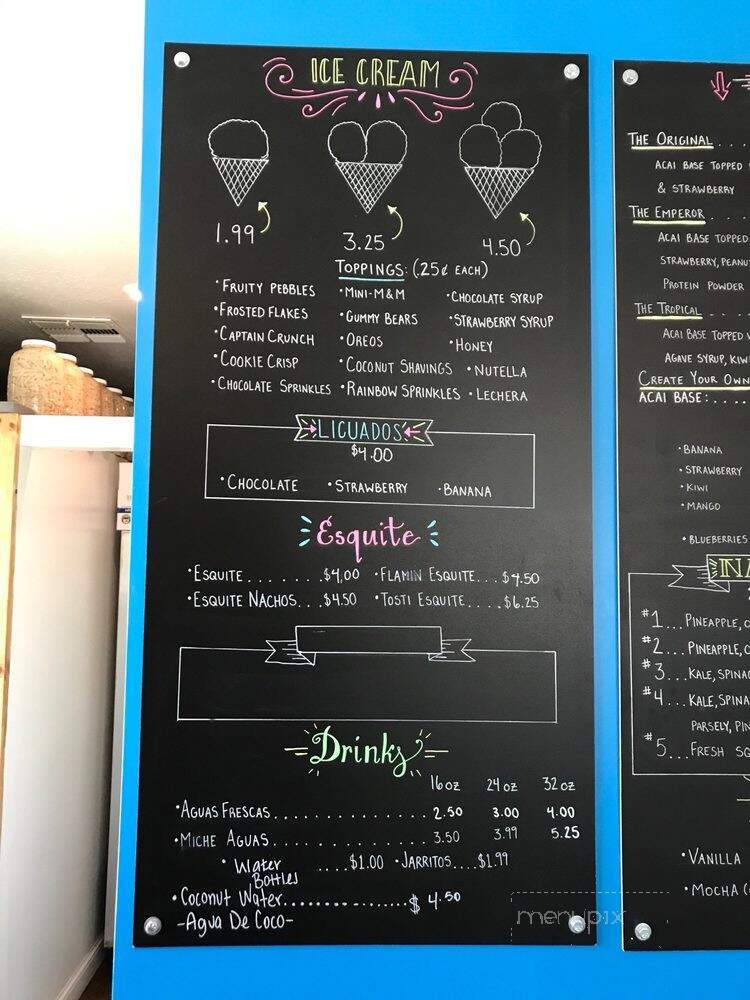 ICE CREAM
1.99
3.25
4.50
TOPPINGS: (.25¢ EACH)
•FRUITY PEBBLES •MINI-M&M •CHOCOLATE SYRUP
•FROSTED FLAKES •GUMMY BEARS •STRAWBERRY SYRUP
•CAPTAIN CRUNCH •OREOS •HONEY
•COOKIE CRISP •COCONUT SHAVINGS •NUTELLA
•CHOCOLATE SPRINKLES •RAINBOW SPRINKLES •LECHERA
LICUADOS
$4.00
•CHOCOLATE •STRAWBERRY •BANANA
Esquite
•ESQUITE.......$4.00 •FLAMIN ESQUITE...$4.50
•ESQUITE NACHOS...$4.50 •TOSTI ESQUITE....$6.25
Drinks
16oz 24oz 32oz
•AGUAS FRESCAS................2.50 3.00 4.00
•MICHE AGUAS................3.50 3.99 5.25
•Water Bottles ....$1.00 •JARRITOS....$1.99
•Coconut Water................$4.50
-Agua De Coco-
THE ORIGINAL....
ACAI BASE TOPPED
& STRAWBERRY
THE EMPEROR....
ACAI BASE TOPPED
STRAWBERRY, PEANU
PROTEIN POWDER
THE TROPICAL
ACAI BASE TOPPED
AGAVE SYRUP, KIW
CREATE YOUR OWN
ACAI BASE:....
•BANANA
•STRAWBERRY
•KIWI
•MANGO
•BLUEBERRIES
#1...PINEAPPLE,
#2...PINEAPPLE,
#3...KALE, SPINA
#4...KALE, SPINA
PARSELY, PIN
#5...FRESH
•VANILLA
•MOCHA
menupix